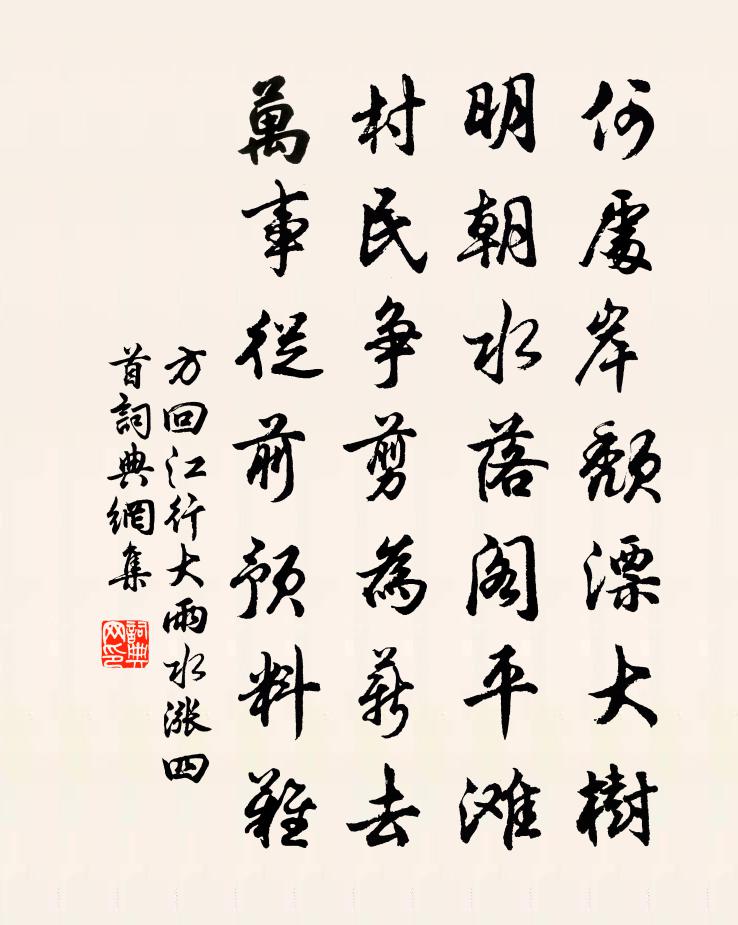 何處岸頹漂大樹
明朝水落閣平滩
村民争剪為薪去
萬事從前預料難
方回江行大雨水漲四
首詞典網集
詞典网印